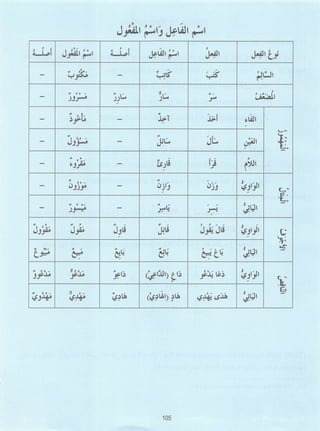 اسم الفاعل واسم المفعول
نوع الفعل الفعل اسم الفاعل أصله اسم المفعول أصله
السالم كتب كاتب – مكتوب –
المضعف سر سار سارر مسرور –
المهموز الفاء أخذ آخذ – مأخوذ –
العين سأل سائل – مسؤول –
اللام قرأ قارئ – مقروء –
المثال الواوي وزن وازن – موزون –
اليائي يسر ياسر – ميسور –
الأجوف الواوي قال يقول قائل قاول مقول مقوول
اليائي باع يبيع بائع بايع مبيع مبيوع
الناقص الواوي دعا يدعو داع (الداعي) داعو مدعو مدعوو
اليائي هدى يهدي هاد (الهادي) هادي مهدي مهدوي
105